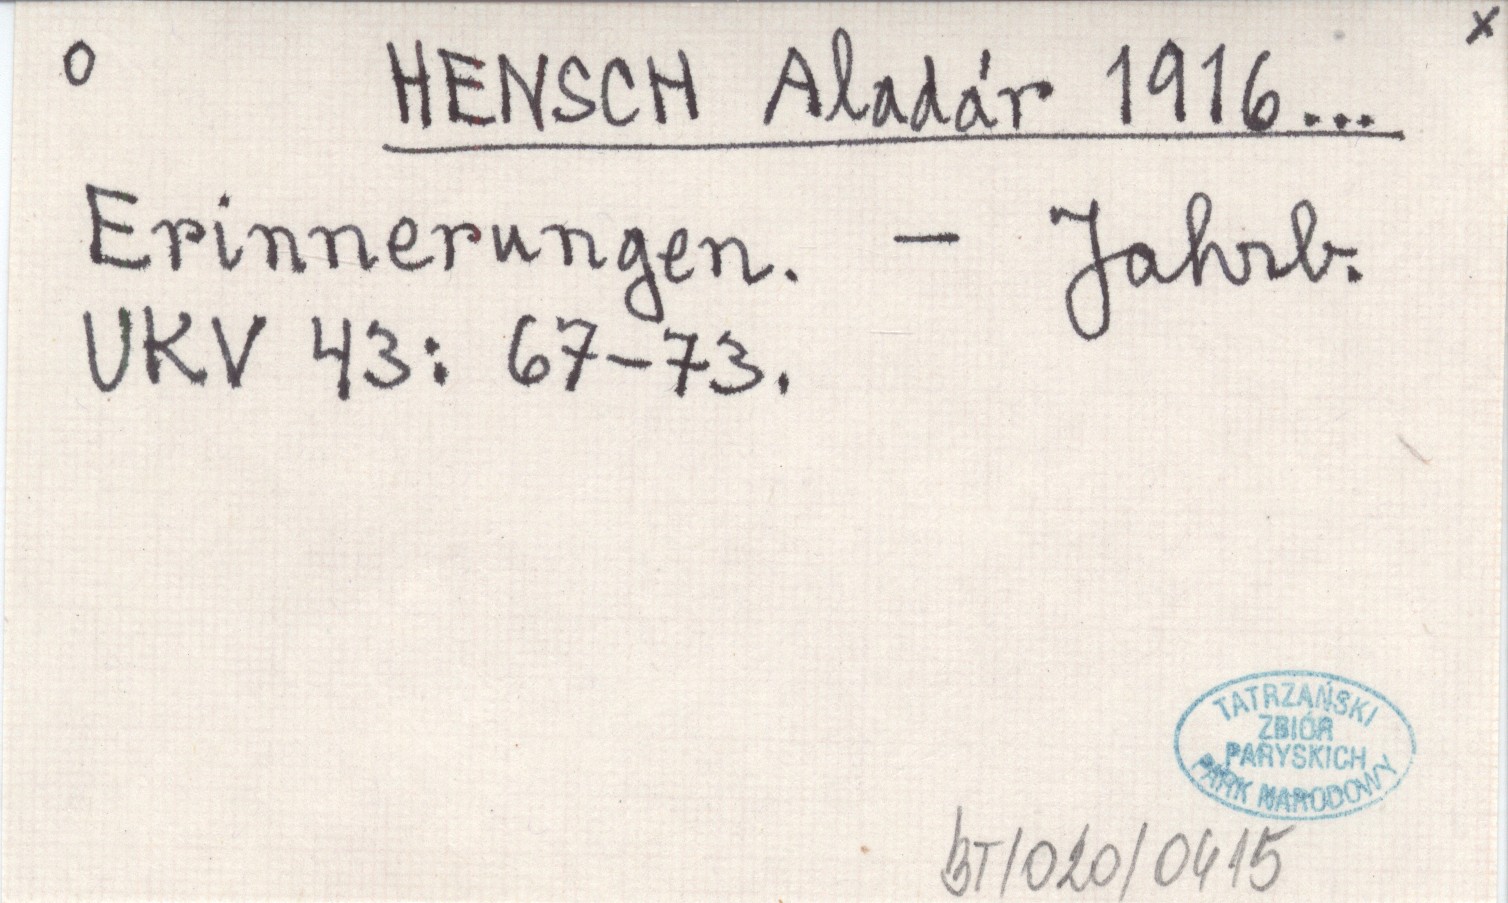 o HENSCH Aladár 1916... x
Erinnerungen. – Jahrb.
UKV 43: 67–73.
TATRZAŃSKI
ZBIÓR
PARYSKICH
PARK NARODOWY
BT/020/0415